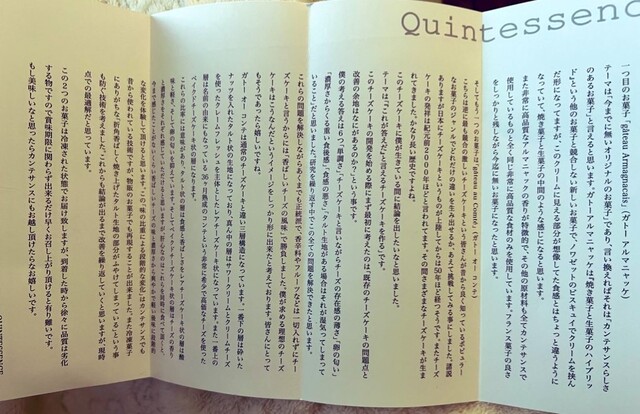 Quintessenc
一つ目のお菓子「gâteau Armagnacais」（ガトー アルマニャッケ）
テーマは、「今までに無いオリジナルのお菓子」であり、言い換えればそれは、「カンテサンスらしさ
のあるお菓子」と言えると思います。ガトーアルマニャッケは、"焼き菓子と生菓子のハイブリッ
ド"という他のお菓子と競合しない新しいお菓子で、ノワゼットのビスキュイでクリームを挟ん
だ形になってますが、このクリームに見える部分が想像した食感とはちょっと違うように
なっていて、焼き菓子と生菓子の中間のような感じになると思います。
また非常に高品質なアルマニャックの香りが特徴的で、その他の原材料も全てカンテサンスで
使用しているものと全く同じ非常に高品質な食材のみを使用しています。フランス菓子の良さ
をしっかりと残しながら今迄に無いお菓子になったと思います。
そしてもう一つのお菓子は、「gâteau au Comté」（ガトー オー コンテ）
こちらは逆に最も競合の激しいチーズケーキという皆さんが昔から良く知っているポピュラー
なお菓子のジャンルでどれだけの違いを生み出せるか、あえて挑戦してみる事にしました。諸説
ありますが日本にチーズケーキというものが上陸してからは50年ほど経つそうです。またチーズ
ケーキの発祥は紀元前2000年ほどと言われてます。その間さまざまなチーズケーキが生ま
れてきました。かなり長い歴史ですよね。
テーマは、「これが答えだ」と言えるチーズケーキを作る、です。
このチーズケーキで僕が生きている間に結論を出したいなと思いました。
このチーズケーキの開発を始める際にまず最初に考えたのは、「既存のチーズケーキの問題点と
改善の余地はなにがあるのか？」という事です。
僕の考える答えはもう、「単調さ」「チーズケーキと言いながらチーズの存在感の薄さ」「卵の匂い」
「濃厚さからくる重い食後感」「食感の悪さ」「タルト生地がある場合はそれが湿気ってしまって
いること」だと思いました。研究を繰り返す中でこの全ての問題を解決できたと思います。
これらの問題を解決しながらあくまでも正統派で、香辛料やフルーツなどは一切入れずにチー
ズケーキと言うからには"香ばしいチーズの風味"で勝負しました。僕が求める理想のチーズ
ケーキはこうなんだというイメージをしっかり形に出来たと考えております。皆さんにとって
もそうであったら嬉しいですね。
ガトー オー コンテは通常のチーズケーキとは違い三層構造になっています。一番下の層は砕いた
ナッツを入れたタルト状の生地になっており真ん中の層はサワークリームとクリームチーズ
を使ったクレームフレッシュを主体としたレアチーズケーキ状になっています。また一番上の
層は名前の由来にもなっている36ヶ月熟成のコンテという非常に希少で高価なチーズを使った
ベイクドチーズケーキ状の層になります。
この2つのお菓子は冷凍された状態でお届け致しますが、到着した時から徐々に品質は劣化
する物ですので賞味期限に関わらず出来るだけ早くお召し上がり頂けると有り難いです。
もし美味しいなと思ったらカンテサンスにもお越し頂けたらなお嬉しいです。
QUINTESSENCE